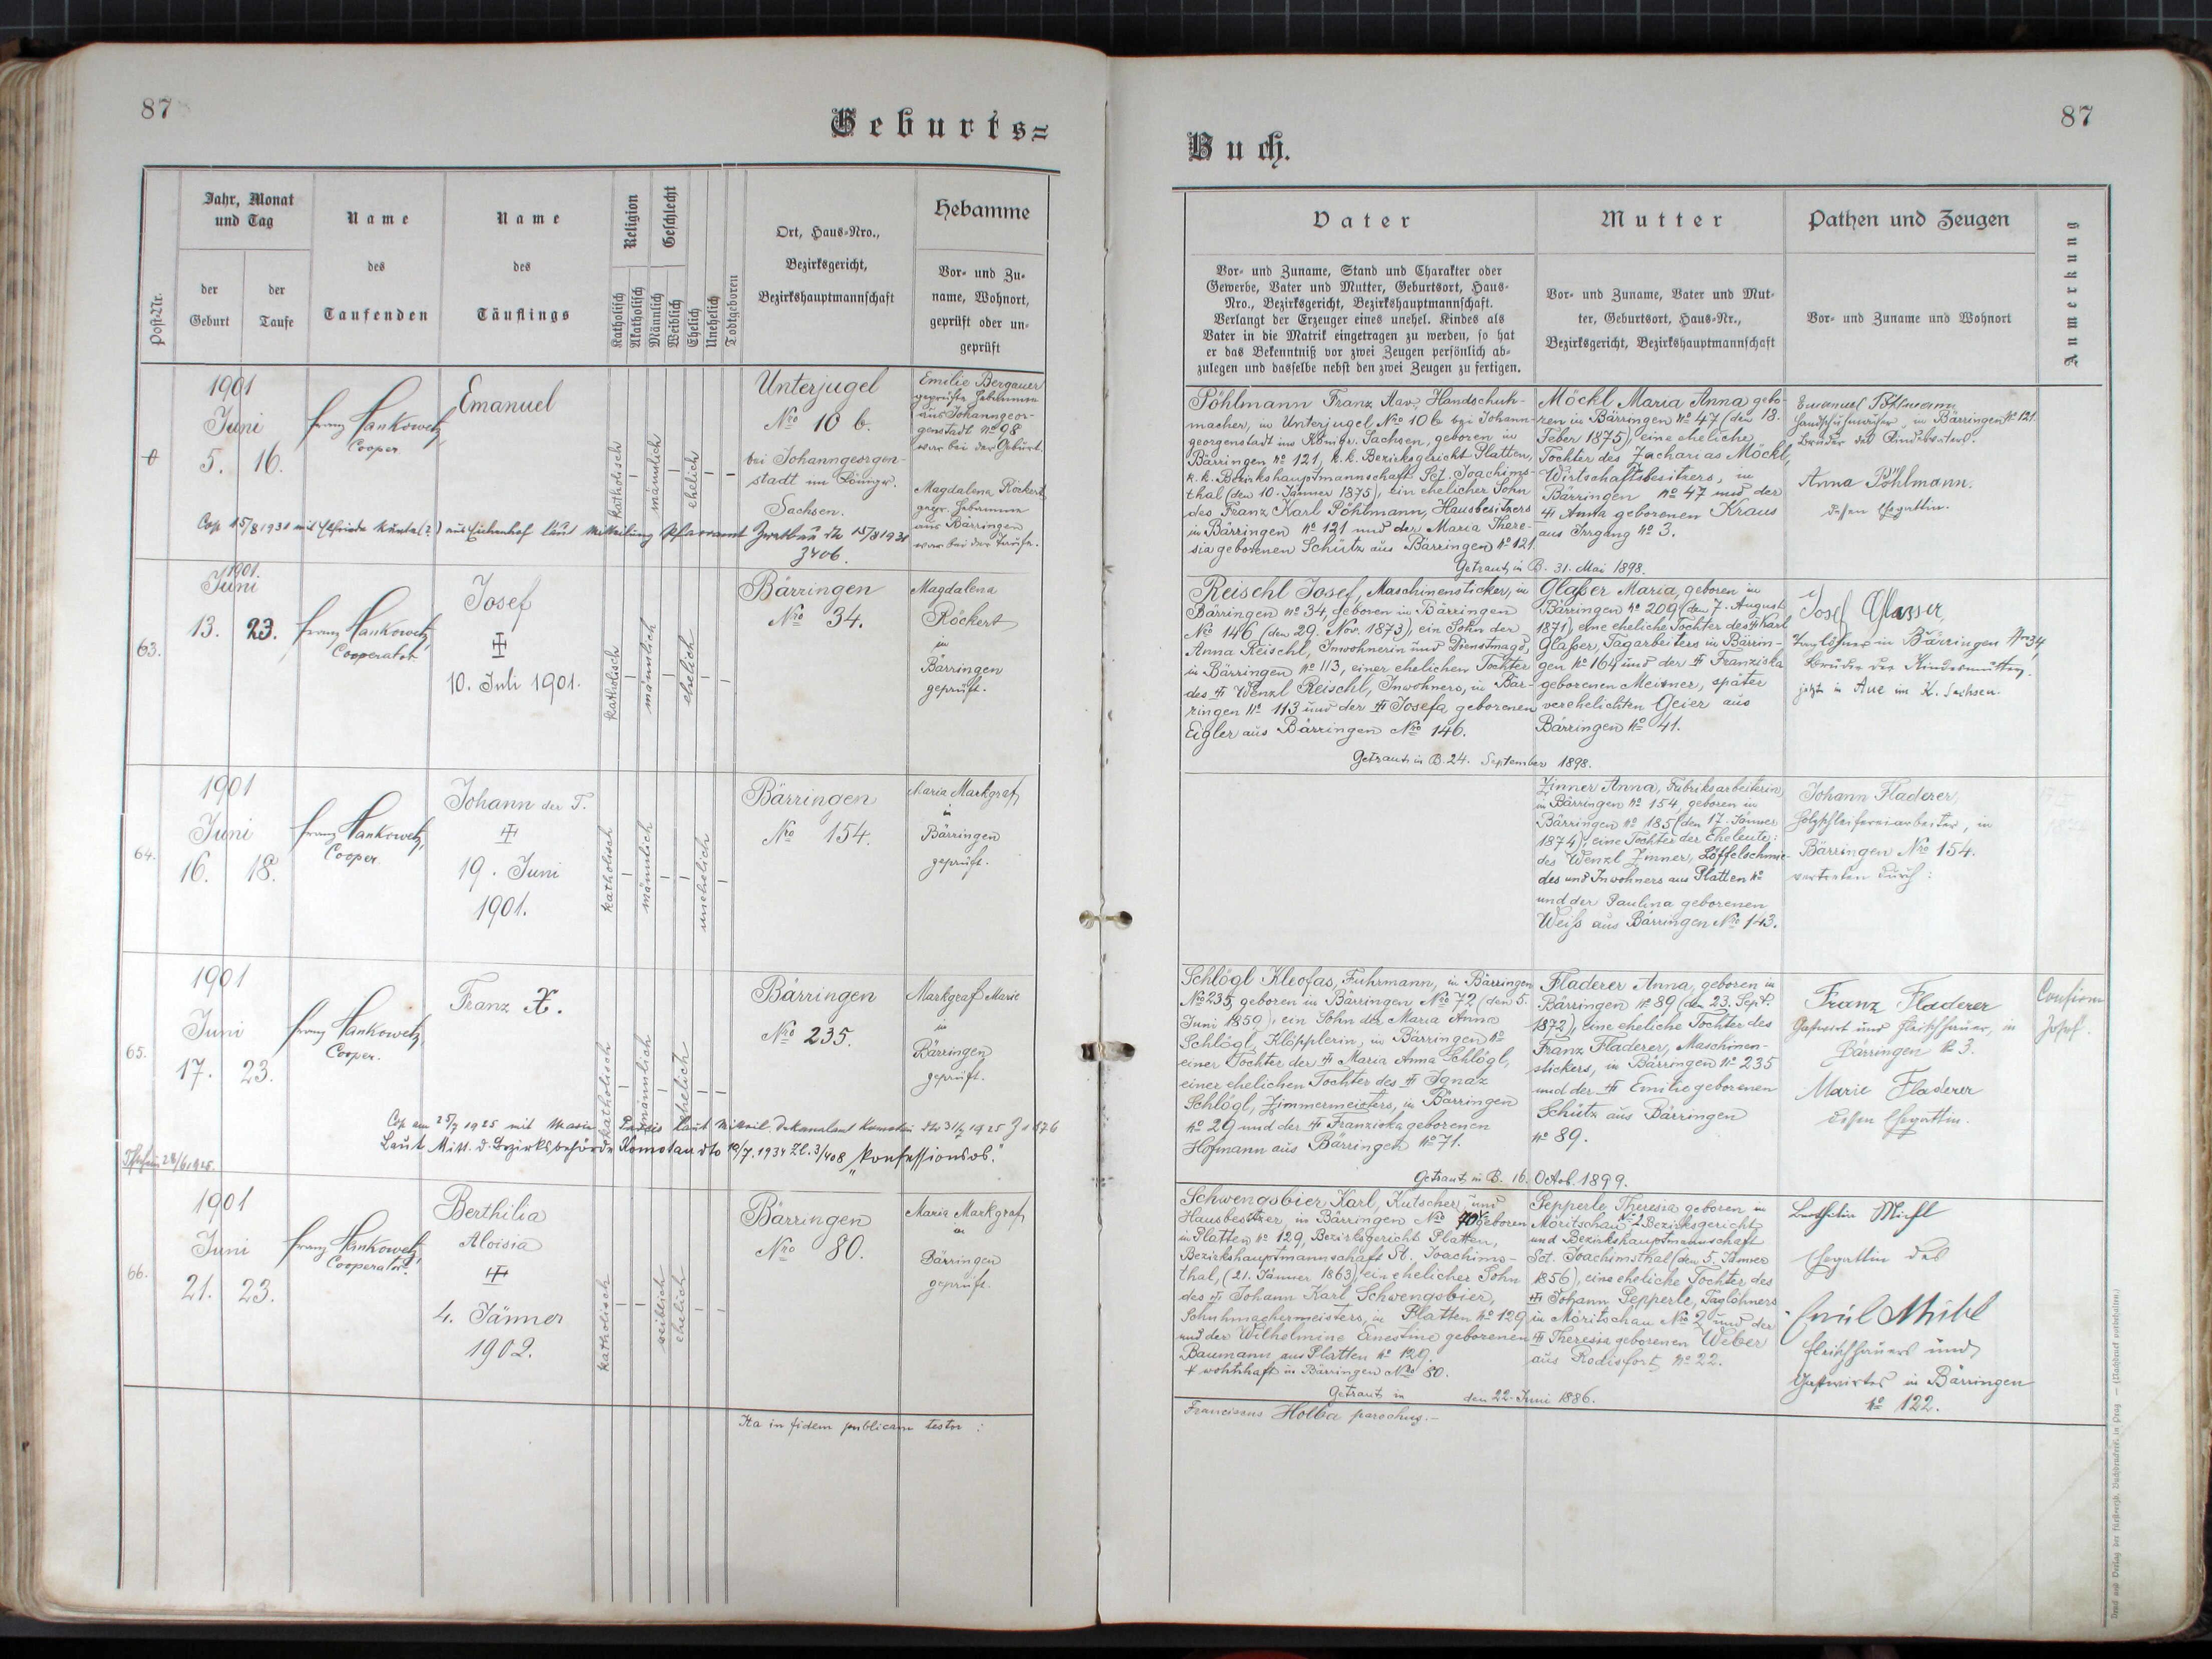 87
Geburts=
Post-Nr.
Jahr, Monat
und Tag
der
Geburt
der
Taufe
Name
des
Taufenden
Name
des
Täuflings
Religion
Katholisch
Akatholisch
Geschlecht
Männlich
Weiblich
Ehelich
Unehelich
Todtgeboren
Ort, Haus-Nro.,
Bezirksgericht,
Bezirkshauptmannschaft
Hebamme
Vor- und Zu-
name, Wohnort,
geprüft oder un-
geprüft
1901
Juni
5. 16.
Franz Hankowetz,
Cooper.
Emanuel
katholisch
männlich
ehelich
Unterjugel
Nro 10 b.
bei Johanngeorgen-
stadt im Königr.
Sachsen.
Emilie Bergauer
geprüfte Hebamme
aus Johanngeor-
genstadt No 98
war bei der Geburt.
Magdalena Röckert,
gepr. Hebamme
aus Bärringen
war bei der Taufe.
Cop 15/8 1931 mit Elfriede aus laut Mitteilung Pfarramt dto 15/8 1931
3406.
63.
1901.
Juni
13. 23.
Franz Hankowetz,
Cooperator
Josef
10. Juli 1901.
katholisch
männlich
ehelich
Bärringen
Nro 34.
Magdalena
Röckert
in
Bärringen
geprüft.
64.
1901
Juni
16. 18.
Franz Hankowetz,
Cooper.
Johann der T.
19. Juni
1901.
katholisch
männlich
unehelich
Bärringen
Nro 154.
Maria Markgraf,
in
Bärringen
geprüft.
65.
1901
Juni
17. 23.
Franz Hankowetz,
Cooper.
Franz X.
katholisch
männlich
ehelich
Bärringen
Nro 235.
Markgraf Marie
in
Bärringen
geprüft.
Cop am 25/7 1925 mit Maria laut Mitteil. Dekanalamt Komotau dto 31/7 1925
Laut Mitt. d. Bezirksbehörde Komotau dto 10/7. 1934 Zl. 3/408 "konfessionslos".
28/6 1925.
66.
1901
Juni
21. 23.
Franz Hankowetz,
Cooperator.
Berthilia
Aloisia
4. Jänner
1902.
katholisch
weiblich
ehelich
Bärringen
Nro 80.
Maria Markgraf,
in
Bärringen
geprüft.
Ita in fidem publicam testor :
87
Buch.
Vater
Vor- und Zuname, Stand und Charakter oder
Gewerbe, Vater und Mutter, Geburtsort, Haus-
Nro., Bezirksgericht, Bezirkshauptmannschaft.
Verlangt der Erzeuger eines unehel. Kindes als
Vater in die Matrik eingetragen zu werden, so hat
er das Bekenntniß vor zwei Zeugen persönlich ab-
zulegen und dasselbe nebst den zwei Zeugen zu fertigen.
Mutter
Vor- und Zuname, Vater und Mut-
ter, Geburtsort, Haus-Nr.,
Bezirksgericht, Bezirkshauptmannschaft
Pathen und Zeugen
Vor- und Zuname und Wohnort
Anmerkung
Pöhlmann Franz Xav., Handschuh-
macher, in Unterjugel Nro 10 b bei Johann-
georgenstadt im Königr. Sachsen, geboren in
Bärringen No 121, k.k. Bezirksgericht Platten,
k.k. Bezirkshauptmannschaft Sct. Joachims-
thal (den 10. Jänner 1875), ein ehelicher Sohn
des Franz Karl Pöhlmann, Hausbesitzers
in Bärringen No 121 und der Maria There-
sia geborenen Schütz aus Bärringen No 121.
Möckl Maria Anna gebo-
ren in Bärringen No 47 (den 18.
Feber 1875), eine eheliche
Tochter des Zacharias Möckl,
Wirtschaftsbesitzers, in
Bärringen No 47 und der
Anna geborenen Kraus
aus Irrgang No 3.
Emanuel Pöhlmann
Handschuhmacher, in Bärringen No 121.
Bruder des Kindesvaters.
Anna Pöhlmann.
dessen Ehegattin.
Getraut, in B. 31. Mai 1898.
Reischl Josef, Maschinensticker, in
Bärringen No 34, geboren in Bärringen
Nro 146 (den 29. Nov. 1873), ein Sohn der
Anna Reischl, Inwohnerin und Dienstmagd,
in Bärringen No 113, einer ehelichen Tochter
des Wenzl Reischl, Inwohners, in Bär-
ringen No 113 und der Josefa geborenen
Eigler aus Bärringen Nro 146.
Glaßer Maria, geboren in
Bärringen No 209 (den 7. August
1871), eine eheliche Tochter des Karl
Glaßer, Tagarbeiters in Bärrin-
gen No 164 und der Franziska
geborenen Meixner, später
verehelichten Geier aus
Bärringen No 41.
Josef Glasser,
Taglöhner in Bärringen Nro 34
Bruder der Kindesmutter,
jetzt in Aue im K. Sachsen.
Getraut in B. 24. September 1898.
Zinner Anna, Fabriksarbeiterin,
in Bärringen No 154, geboren in
Bärringen No 185 (den 17. Jänner
1874), eine Tochter der Eheleute:
des Wenzl Zinner, Löffelschmie-
des und Inwohners aus Platten No
und der Paulina geborenen
Weiß aus Bärringen Nro 143.
Johann Fladerer,
Holzschleifereiarbeiter, in
Bärringen Nro 154.
vertreten durch:
Schlögl Kleofas, Fuhrmann, in Bärringen
No 235, geboren in Bärringen Nro 72 (den 5.
Juni 1859), ein Sohn der Maria Anna
Schlögl, Klöpplerin, in Bärringen No
einer Tochter der Maria Anna Schlögl,
einer ehelichen Tochter des Ignaz
Schlögl, Zimmermeisters, in Bärringen
No 29 und der Franziska geborenen
Hofmann aus Bärringen No 71.
Fladerer Anna, geboren in
Bärringen No 89 (den 23. Sept.
1872), eine eheliche Tochter des
Franz Fladerer, Maschinen-
stickers, in Bärringen No 235
und der Emilie geborenen
Schütz aus Bärringen
No 89.
Franz Fladerer
Gastwirt und Fleischhauer, in
Bärringen No 3.
Marie Fladerer
dessen Ehegattin.
Josef.
Getraut, in B. 16. Octob. 1899.
Schwengsbier, Karl, Kutscher und
Hausbesitzer, in Bärringen Nro 70 geboren
in Platten No 129, Bezirksgericht Platten,
Bezirkshauptmannschaft St. Joachims-
thal, (21. Jänner 1863), ein ehelicher Sohn
des Johann Karl Schwengsbier,
Schuhmachermeisters, in Platten No 129
und der Wilhelmine Ernestine geborenen
Baumann aus Platten No 129.
+ wohnhaft in Bärringen Nro 80.
Pepperle Theresia geboren in
Möritschau No 2 Bezirksgericht
und Bezirkshauptmannschaft
Sct. Joachimsthal (den 5. Jänner
1856), eine eheliche Tochter des
Johann Pepperle, Taglöhners
in Möritschau Nro 2 und der
Theresia geborenen Weber
aus Rodisfort No 22.
Berthilia Michl
Ehegattin des
Emil Michl
Fleischhauers und
Gastwirtes in Bärringen
No 122.
Getraut in den 22. Juni 1886.
Franciscus Holba parochus.-
Druck und Verlag der fürsterzb. Buchdruckerei in Prag. — (Nachdruck vorbehalten.)